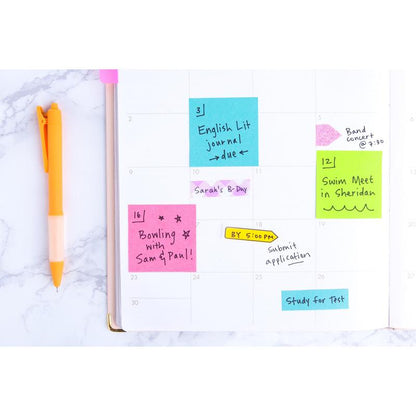 2
3
English Lit
journal
→due←
5
Band
concert
@ 7:30
9
10
11
12
Swim Meet
in Sheridan
Sarah's B-Day
16
Bowling
with
Sam & Paul!
BY 5:00 PM
Submit
application
23
24
25
26
Study for Test
30